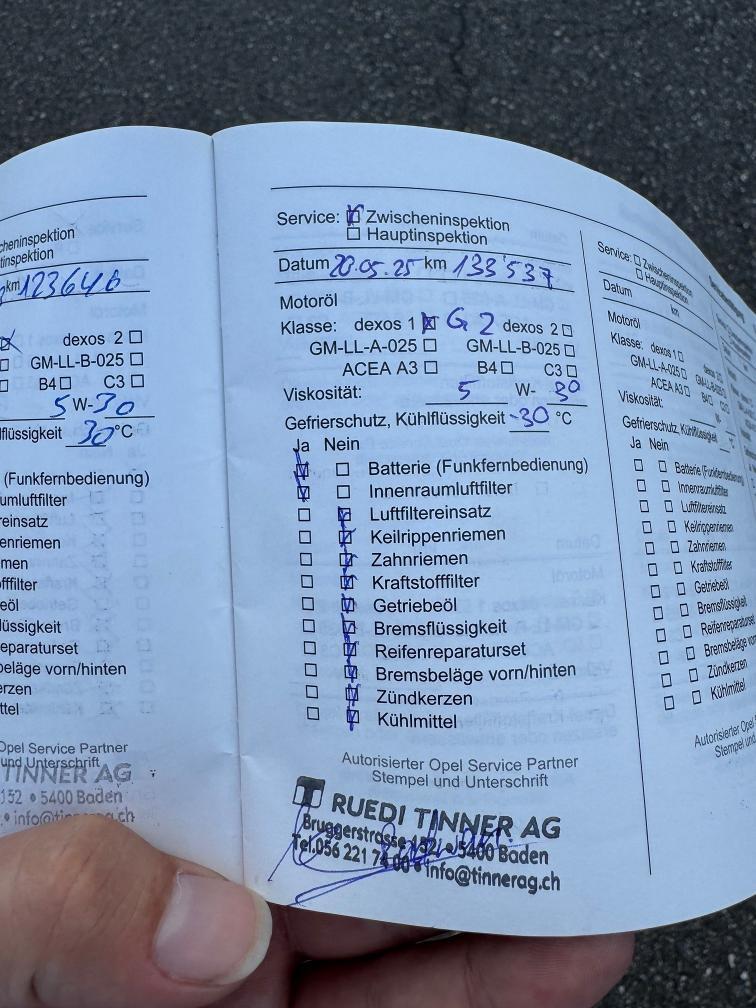 cheninspektion
tinspektion
km 123646
dexos 2
GM-LL-B-025
B4 C3
5 W-30
lflüssigkeit 30 °C
(Funkfernbedienung)
umluftfilter
reinsatz
enriemen
men
offfilter
beöl
lüssigkeit
eparaturset
beläge vorn/hinten
erzen
ttel
Opel Service Partner
und Unterschrift
TINNER AG
152 • 5400 Baden
Service: Zwischeninspektion
Hauptinspektion
Datum 20.05.25 km 133'537
Motoröl
Klasse: dexos 1 G2 dexos 2
GM-LL-A-025 GM-LL-B-025
ACEA A3 B4 C3
Viskosität: 5 W- 30
Gefrierschutz, Kühlflüssigkeit -30 °C
Ja Nein
Batterie (Funkfernbedienung)
Innenraumluftfilter
Luftfiltereinsatz
Keilrippenriemen
Zahnriemen
Kraftstofffilter
Getriebeöl
Bremsflüssigkeit
Reifenreparaturset
Bremsbeläge vorn/hinten
Zündkerzen
Kühlmittel
Autorisierter Opel Service Partner
Stempel und Unterschrift
RUEDI TINNER AG
Bruggerstrasse 152 • 5400 Baden
Tel.056 221 74 00 • info@tinnerag.ch
Service: Zwischeninspektion
Hauptinspektion
Datum km
Motoröl
Klasse: dexos 1
GM-LL-A-025
ACEA A3
Viskosität:
Gefrierschutz, Kühlflüssigkeit
Ja Nein
Batterie (Funkfernbedienung)
Innenraumluftfilter
Luftfiltereinsatz
Keilrippenriemen
Zahnriemen
Kraftstofffilter
Getriebeöl
Bremsflüssigkeit
Reifenreparaturset
Bremsbeläge vo
Zündkerzen
Kühlmittel
Autorisierter Opel
Stempel und